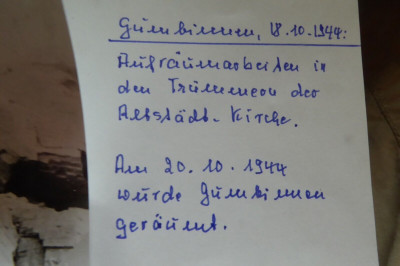 Gumbinnen, 18.10.1944:
Aufräumarbeiten in
den Trümmern der
Altstädt. Kirche.
Am 20.10.1944
wurde Gumbinnen
geräumt.